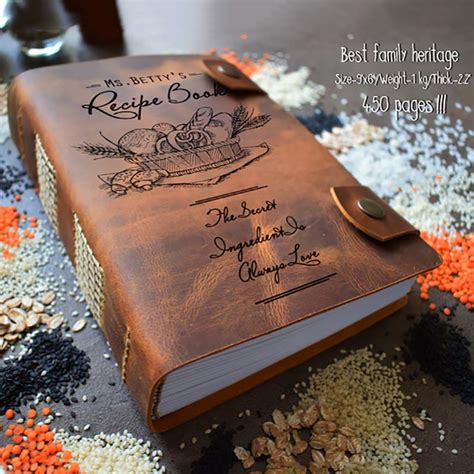 Best family heritage
Size-9x6y/Weight-1 kg/Thick-2.2
450 pages !!!
Ms. Betty's
Recipe Book
The Secret
Ingredient Is
Always Love